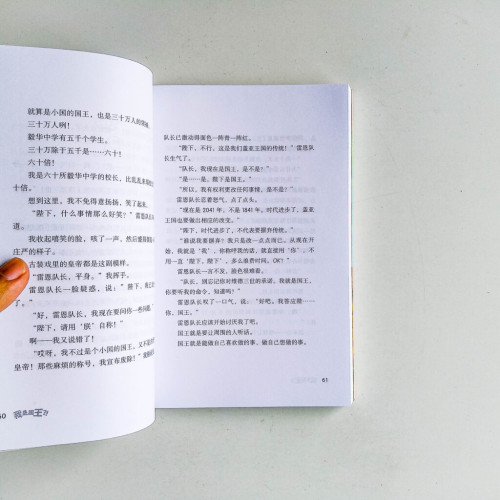 就算是小国的国王，也是三十万人的
三十万人啊！
毅华中学有五千个学生。
三十万除于五千是……六十！
六十倍！
我是六十所毅华中学的校长，比
十倍。
想到这里，我不免得意扬扬，笑了起来。
“陛下，什么事情那么好笑？”雷恩队
道。
我收起嘻笑的脸，咳了一声，然后盛
庄严的样子。
古装戏里的皇帝都是这副模样。
“雷恩队长，平身。”我挥手。
雷恩队长一脸疑惑，说：“陛下，我
了。”
“好，雷恩队长，我现在要问你一些问
“陛下，请用‘朕’自称！”
啊——我又说错了！
“哎呀，我不过是个小国的国王，又不
皇帝！那些麻烦的称号，我宣布废除！”
60 我是国王
队长已激动得脸色一阵青一阵红。
“陛下，不行，这是我们盖亚王国的传统！”雷恩
队长生气了。
“队长，我现在是国王，是不是？”
“是……是，陛下是国王。”
“所以，我有权利更改任何事情，是不是？”
雷恩队长忍着怒气，点了点头。
“现在是2041年，不是1841年，时代进步了，盖亚
王国也要做出相应的改变。”
“陛下，时代进步了，不代表要摒弃传统。”
“谁说我要摒弃？我只是改一点点而已。从现在开
始，我就是‘我’，你称呼我的话，就直接用‘你’，不
用一直‘陛下，陛下’，多么浪费时间，OK？”
雷恩队长一言不发，脸色很难看。
“队长，别忘记你对维德三世的承诺，我就是国王，
你要听我的命令，知道吗？”
雷恩队长叹了一口气，说：“好吧，我答应跟……
你，国王。”
雷恩队长应该开始讨厌我了吧。
国王就是要让周围的人听话。
国王就是能做自己喜欢做的事，做自己想做的事。
61